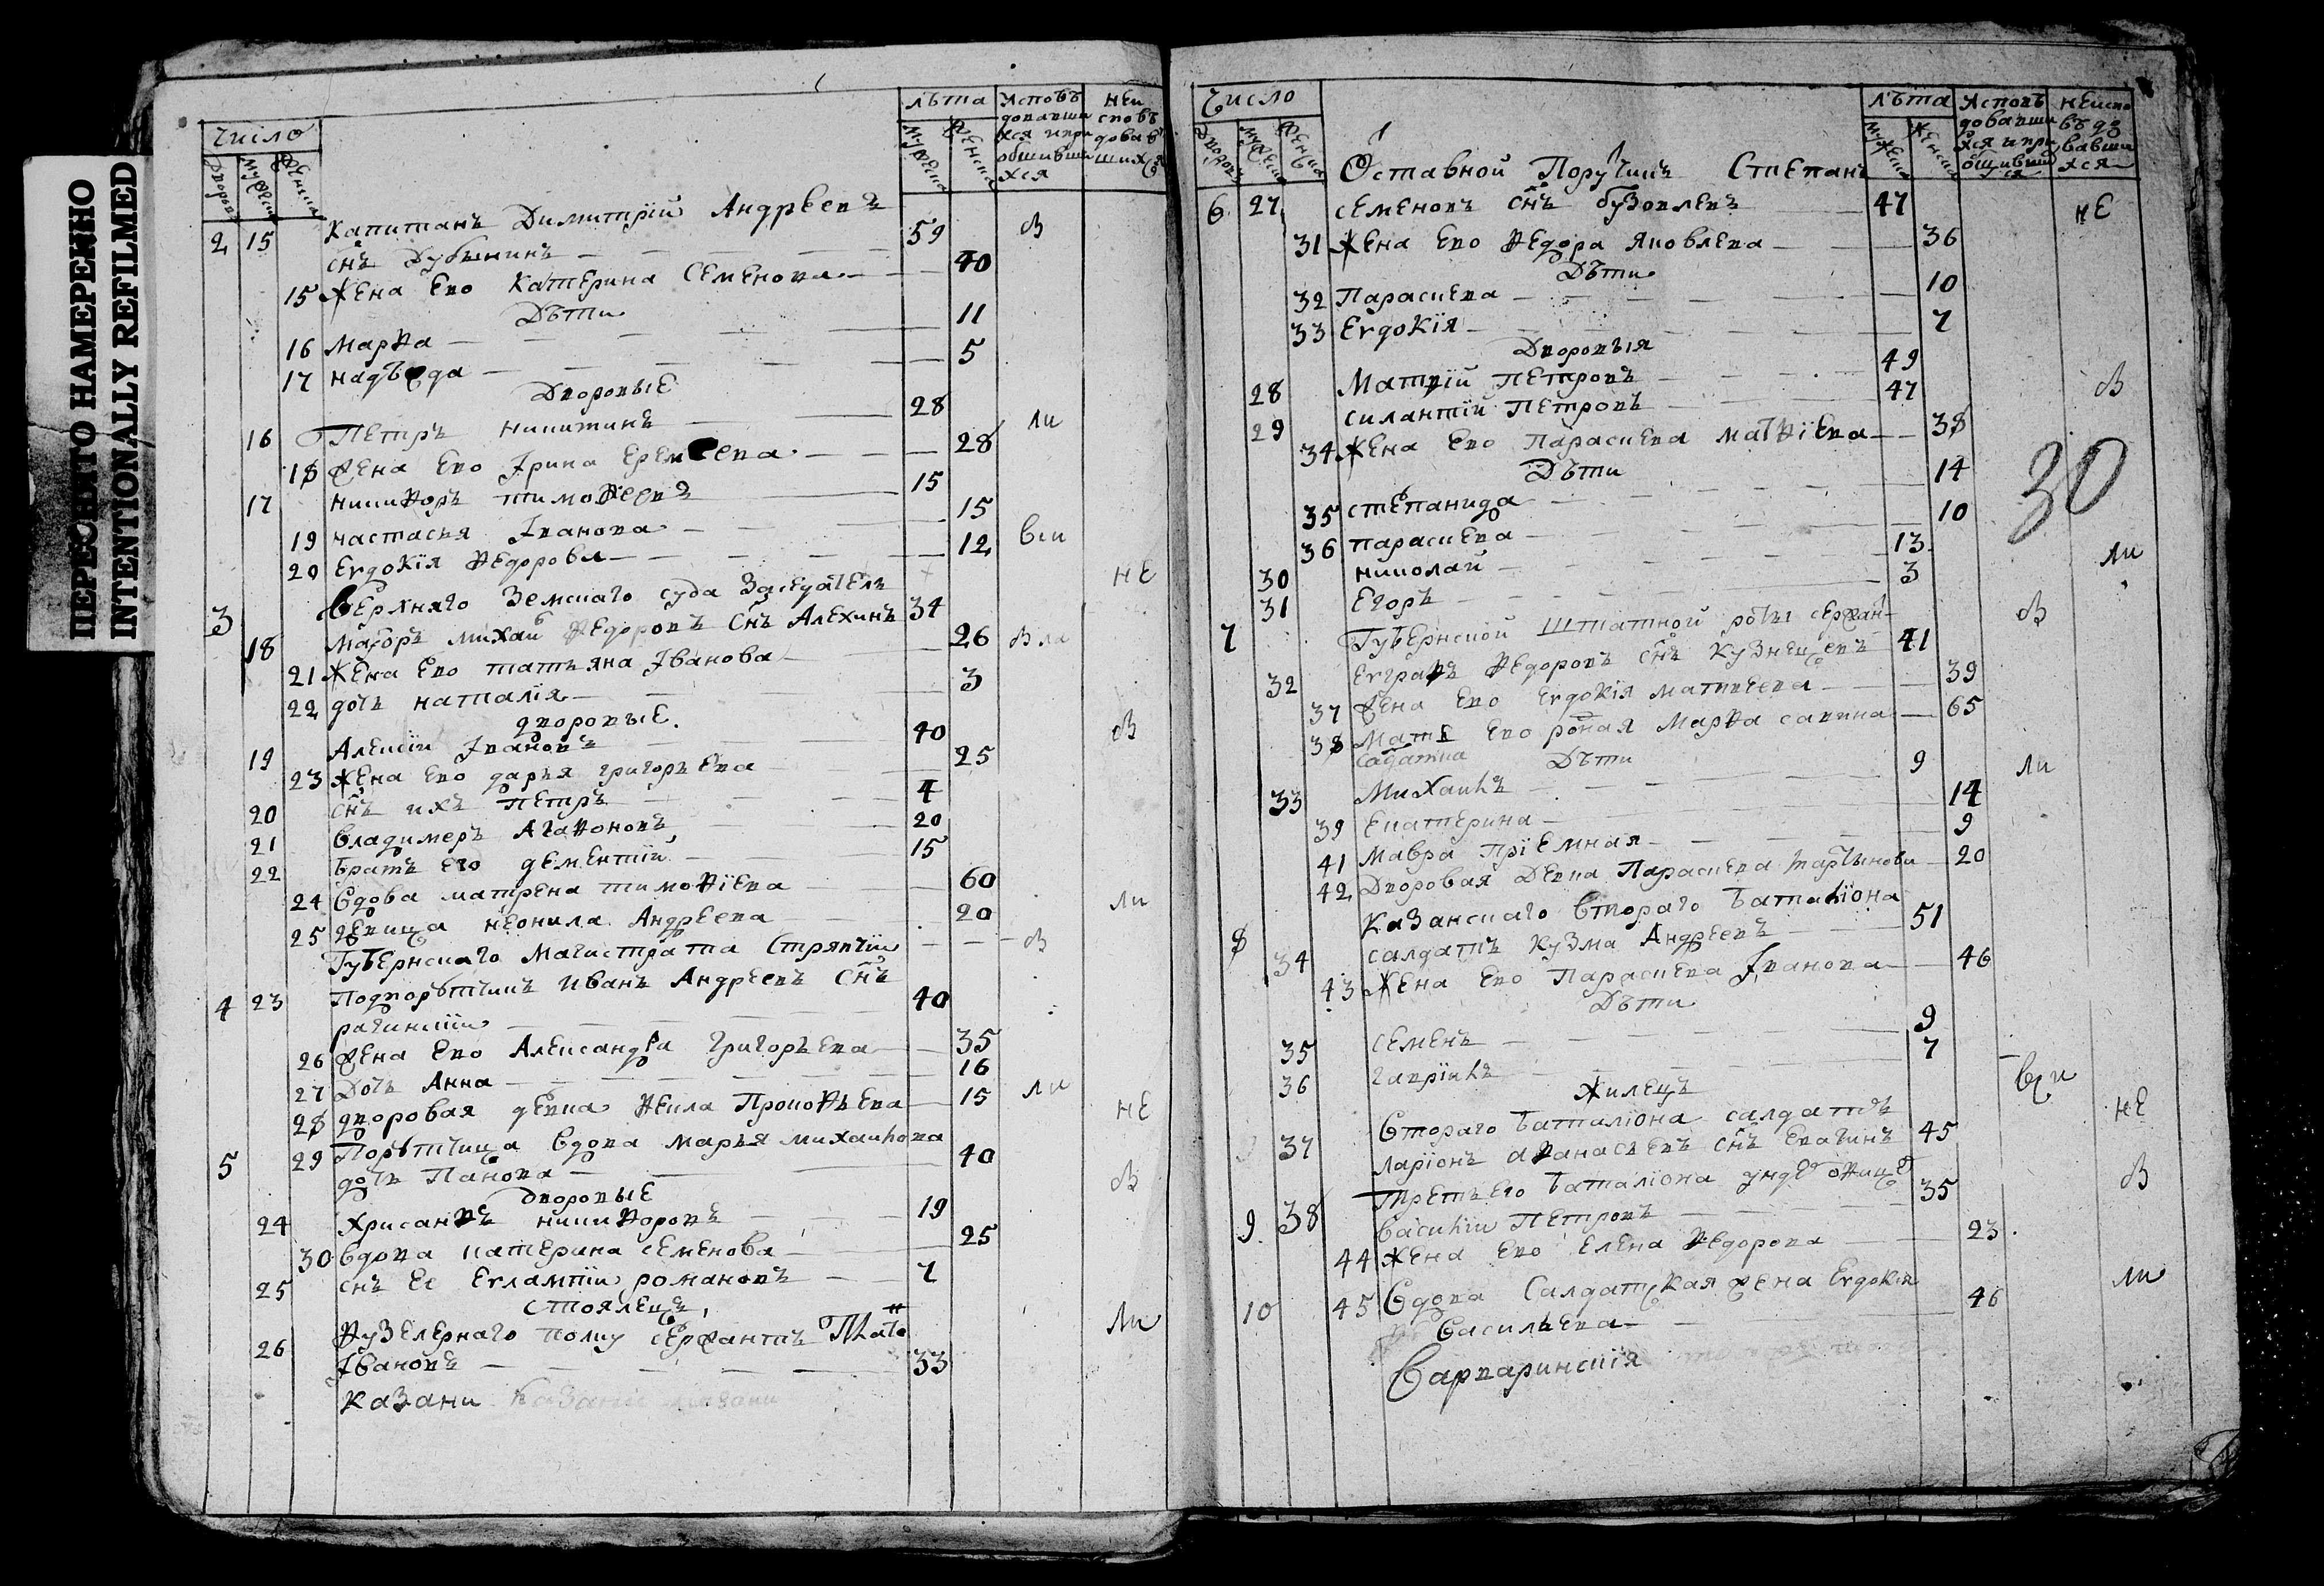 ПЕРЕСНЯТО НАМЕРЕННО
INTENTIONALLY REFILMED
число
лѣта
исповѣ
дапавши
хся и при
общивши
хся
неи
сповѣ
довав
шихся
дворов
мужеск
женска
мужеска
женска
2 15 Капитанъ Димитрій Андреевъ
снъ Дубынинъ 59
15 жена Ево Катерина Семенова 40
Дѣти
16 Марѳа 11
17 надѣжда 5
Дворовые
16 Петръ никитинъ 28
18 жена Ево Ірина Еремеева 28
17 никиѳоръ тимоѳеевъ 15
19 настасья Іванова 15
20 Евдокія Ѳедорова 12
3 верхняго Земскаго суда Заседатель
18 Маіоръ михаи Ѳедоровъ снъ Алехинъ 34
21 жена Ево татьяна Іванова 26
22 дочь наталія 3
дворовые
19 Алексіи Івановъ 40
23 жена Ево дарья григорьева 25
20 снъ ихъ петръ 4
21 владимеръ Агаѳоновъ 20
22 братъ Его дементій 15
24 вдова матрена тимоѳіева 60
25 девица неонила Андреева 20
Губернскаго Магистрата Стряпчіи
4 23 Подпорутчикъ иванъ Андреевъ снъ
рагинскіи 40
26 жена Ево Александра Григорьева 35
27 Дочь Анна 16
28 дворовая девка Ѳекла Прокоѳьева 15
5 29 Порутчица вдова марья михаилова
дочь Панова 40
Дворовые
24 Хрисанѳъ никиѳоровъ 19
30 вдова катерина семенова 25
25 снъ Ее Евлампіи романовъ 7
стоялецъ
26 Ѳузелернаго полку сержантъ Плато
Івановъ 33
казани
В
ли
вси
не
В
ли
В
ли
не
В
ли
число
лѣта
исповѣ
довавши
хся и при
общивши
ся
неиспо
вѣдо
вавши
хся
Оставной Поручикъ Степанъ
6 27 семеновъ снъ бузовлевъ 47
31 жена Ево Ѳедора Яковлева 36
Дѣти
32 Параскева 10
33 Евдокія 7
Дворовыя
28 Матвій Петровъ 49
29 силантій Петровъ 47
34 жена Ево параскева матѳіева 38
Дѣти
35 степанида 14
36 параскева 10
30 николай 13
31 Егоръ 3
7 Губернской штатной роты сержан
32 Евграѳъ Ѳедоровъ снъ кузнецовъ 41
37 жена Ево Евдокія матвеева 39
38 Мать Ево роная Марѳа савина 65
Дѣти
33 Михаилъ 9
39 Екатерина 14
41 Мавра пріемная 9
42 Дворовая Девка Параскева мартынова 20
казанскаго втораго баталіона
8 34 салдатъ кузма Андреевъ 51
43 жена Ево Параскева Іванова 46
Дѣти
35 семенъ 9
36 гавріилъ 7
жилецъ
втораго баталіона салдатъ
37 ларіонъ аѳанасьевъ снъ Елагинъ 45
третьего баталіона ундеръ оѳице
9 38 василіи Петровъ 35
44 жена Ево Елена Ѳедорова 23
10 45 вдова Салдатская жена Евдокія
васильева 46
варваринскія
не
В
30
ли
В
ли
вси
не
В
ли